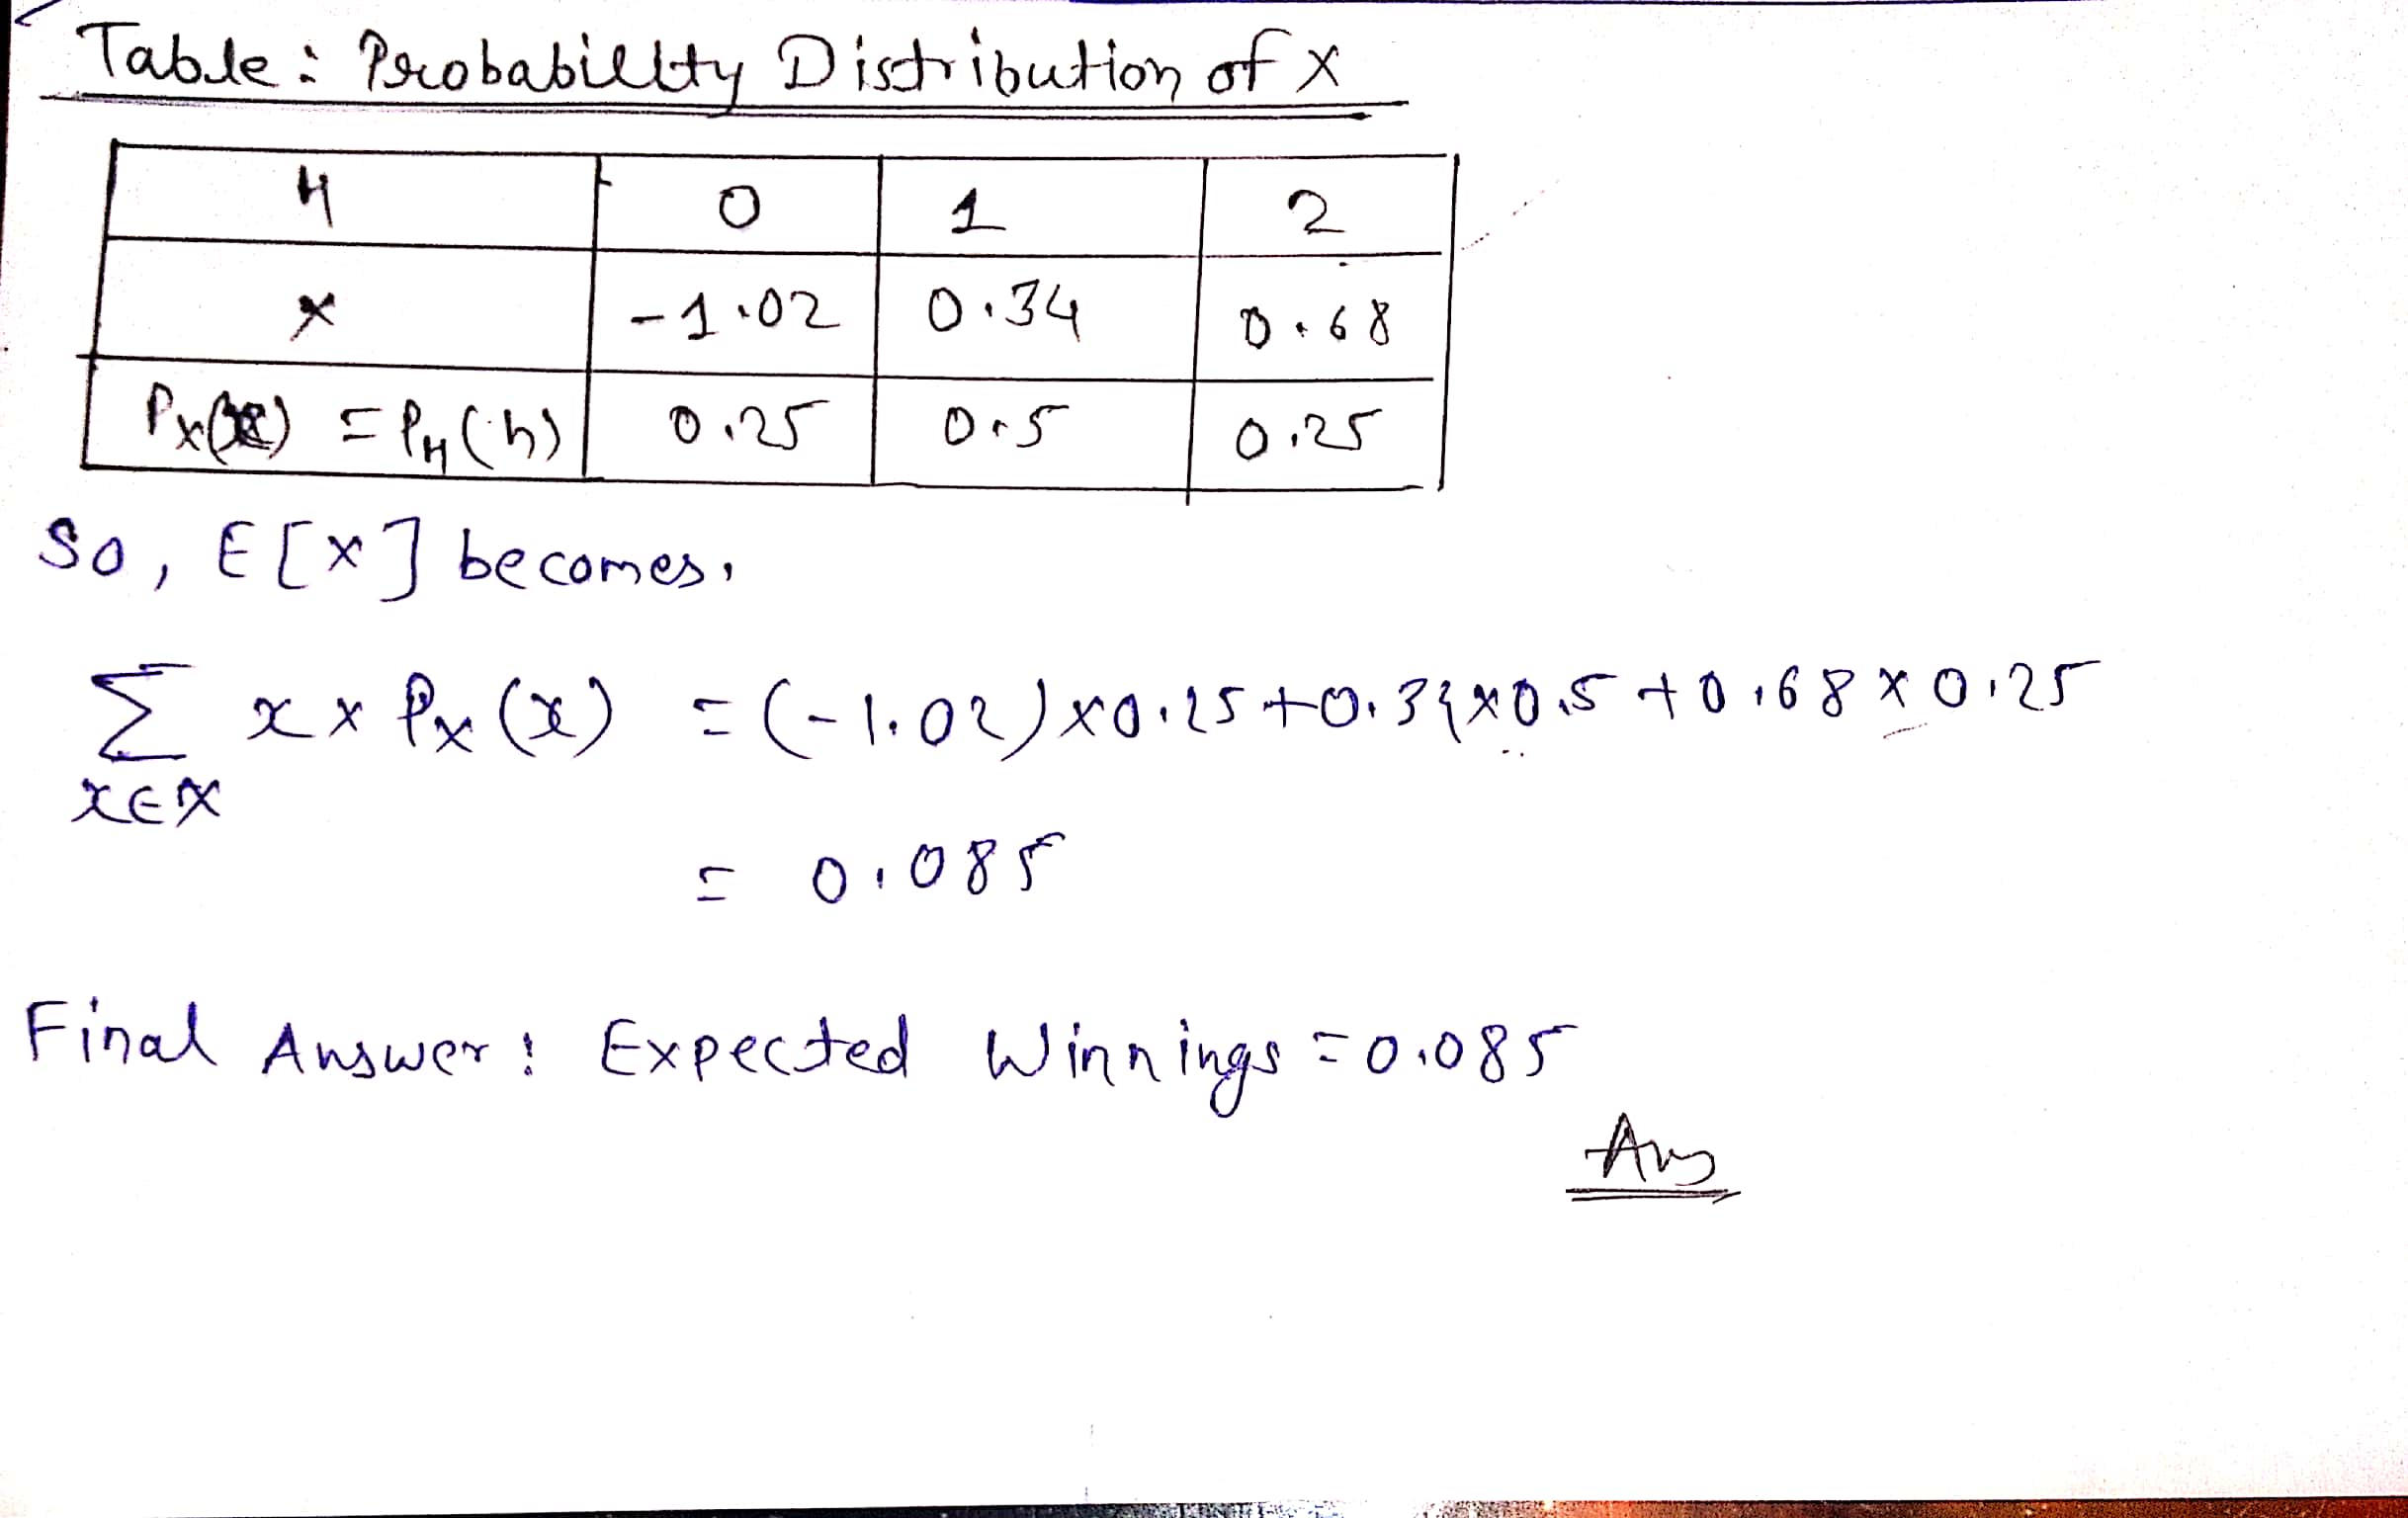 Table: Probability Distribution of X
H 0 1 2
x -1.02 0.34 0.68
P_X(x) = P_H(h) 0.25 0.5 0.25
So, E[X] becomes,
∑ x × P_X(x) = (-1.02)×0.25+0.34×0.5+0.68×0.25
x∈X
= 0.085
Final Answer: Expected Winnings = 0.085
Ans